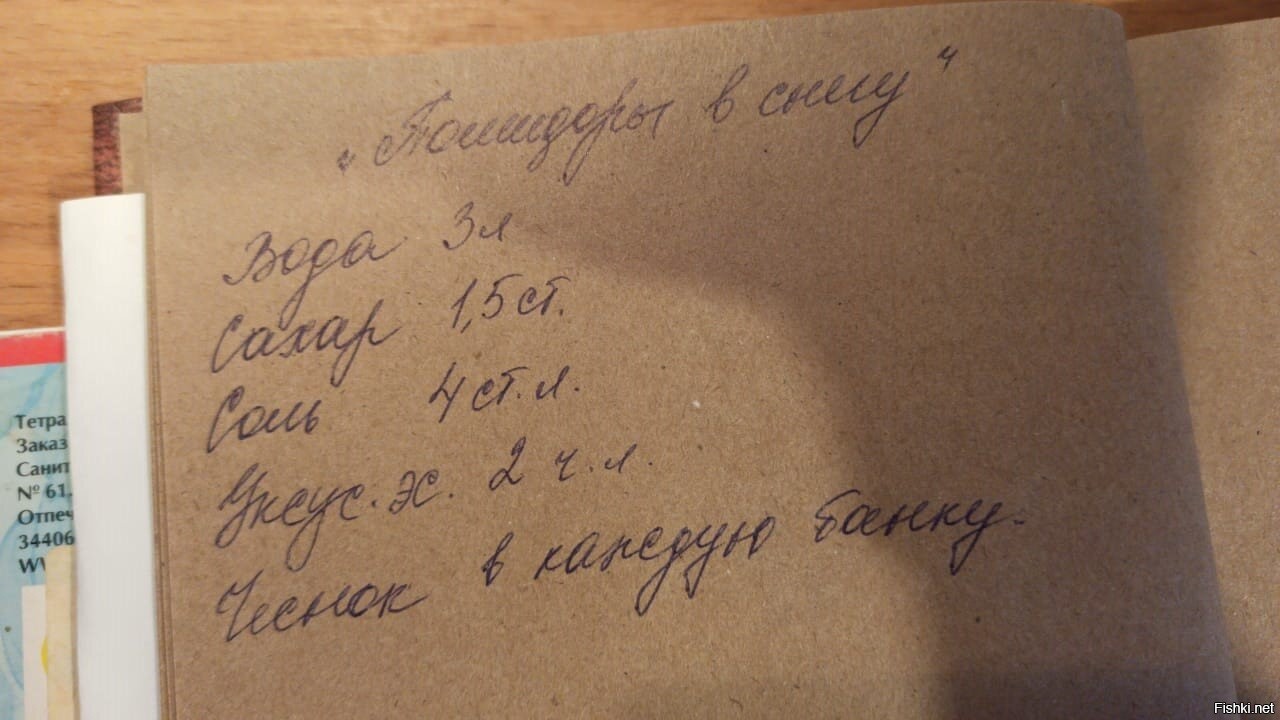 „Помидоры в снегу"
Вода 3л
Сахар 1,5 ст.
Соль 4 ст. л.
Уксус. эс. 2 ч. л.
Чеснок в каждую банку.
Тетра
Заказ
Санит
№ 61.
Отпеч
34406
Fishki.net